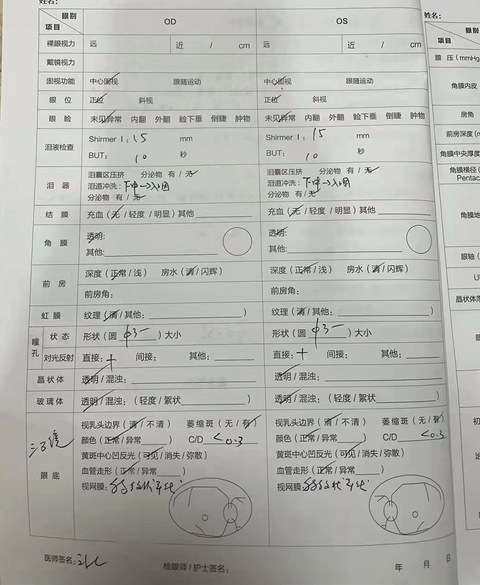 姓名：
眼别 项目 OD OS
裸眼视力 远 近 / cm 远 近 / cm
戴镜视力
固视功能 中心固视 跟随运动 中心固视 跟随运动
眼 位 正位 斜视 正位 斜视
眼 睑 未见异常 内翻 外翻 睑下垂 倒睫 肿物 未见异常 内翻 外翻 睑下垂 倒睫 肿物
泪液检查 Shirmer I：15 mm Shirmer I：15 mm
BUT： 10 秒 BUT： 10 秒
泪 器 泪囊区压挤 分泌物 有 / 无 泪囊区压挤 分泌物 有 / 无
泪道冲洗：下冲→入咽 泪道冲洗：下冲→入咽
分泌物 有 / 无 分泌物 有 / 无
结 膜 充血（无 / 轻度 / 明显）其他 充血（无 / 轻度 / 明显）其他
角 膜 透明： 透明：
其他： 其他：
前 房 深度（正常 / 浅） 房水（清 / 闪辉） 深度（正常 / 浅） 房水（清 / 闪辉）
前房角： 前房角：
虹 膜 纹理（清 / 其他： ） 纹理（清 / 其他： ）
瞳孔 状 态 形状（圆 ）大小 形状（圆 ）大小
对光反射 直接：+ 间接： 其他： 直接：+ 间接： 其他：
晶 状 体 透明 / 混浊： 透明 / 混浊：
玻 璃 体 透明 / 混浊：（轻度 / 絮状 ） 透明 / 混浊：（轻度 / 絮状 ）
三面镜
眼 底 视乳头边界（清 / 不清） 萎缩斑（无 / 有） 视乳头边界（清 / 不清） 萎缩斑（无 / 有）
颜色（正常 / 异常 ） C/D <0.3 颜色（正常 / 异常 ） C/D <0.3
黄斑中心凹反光（可见 / 消失 / 弥散） 黄斑中心凹反光（可见 / 消失 / 弥散）
血管走形（正常 / 异常 ） 血管走形（正常 / 异常 ）
视网膜： 视网膜：
医师签名：
检眼师 / 护士签名： 年 月 日
姓名：
眼别
项目
眼 压（mmHg
角膜内皮
房角
前房深度（m
角膜中央厚度
角膜横径（
Pentac
角膜地
眼轴（
U
晶状体厚